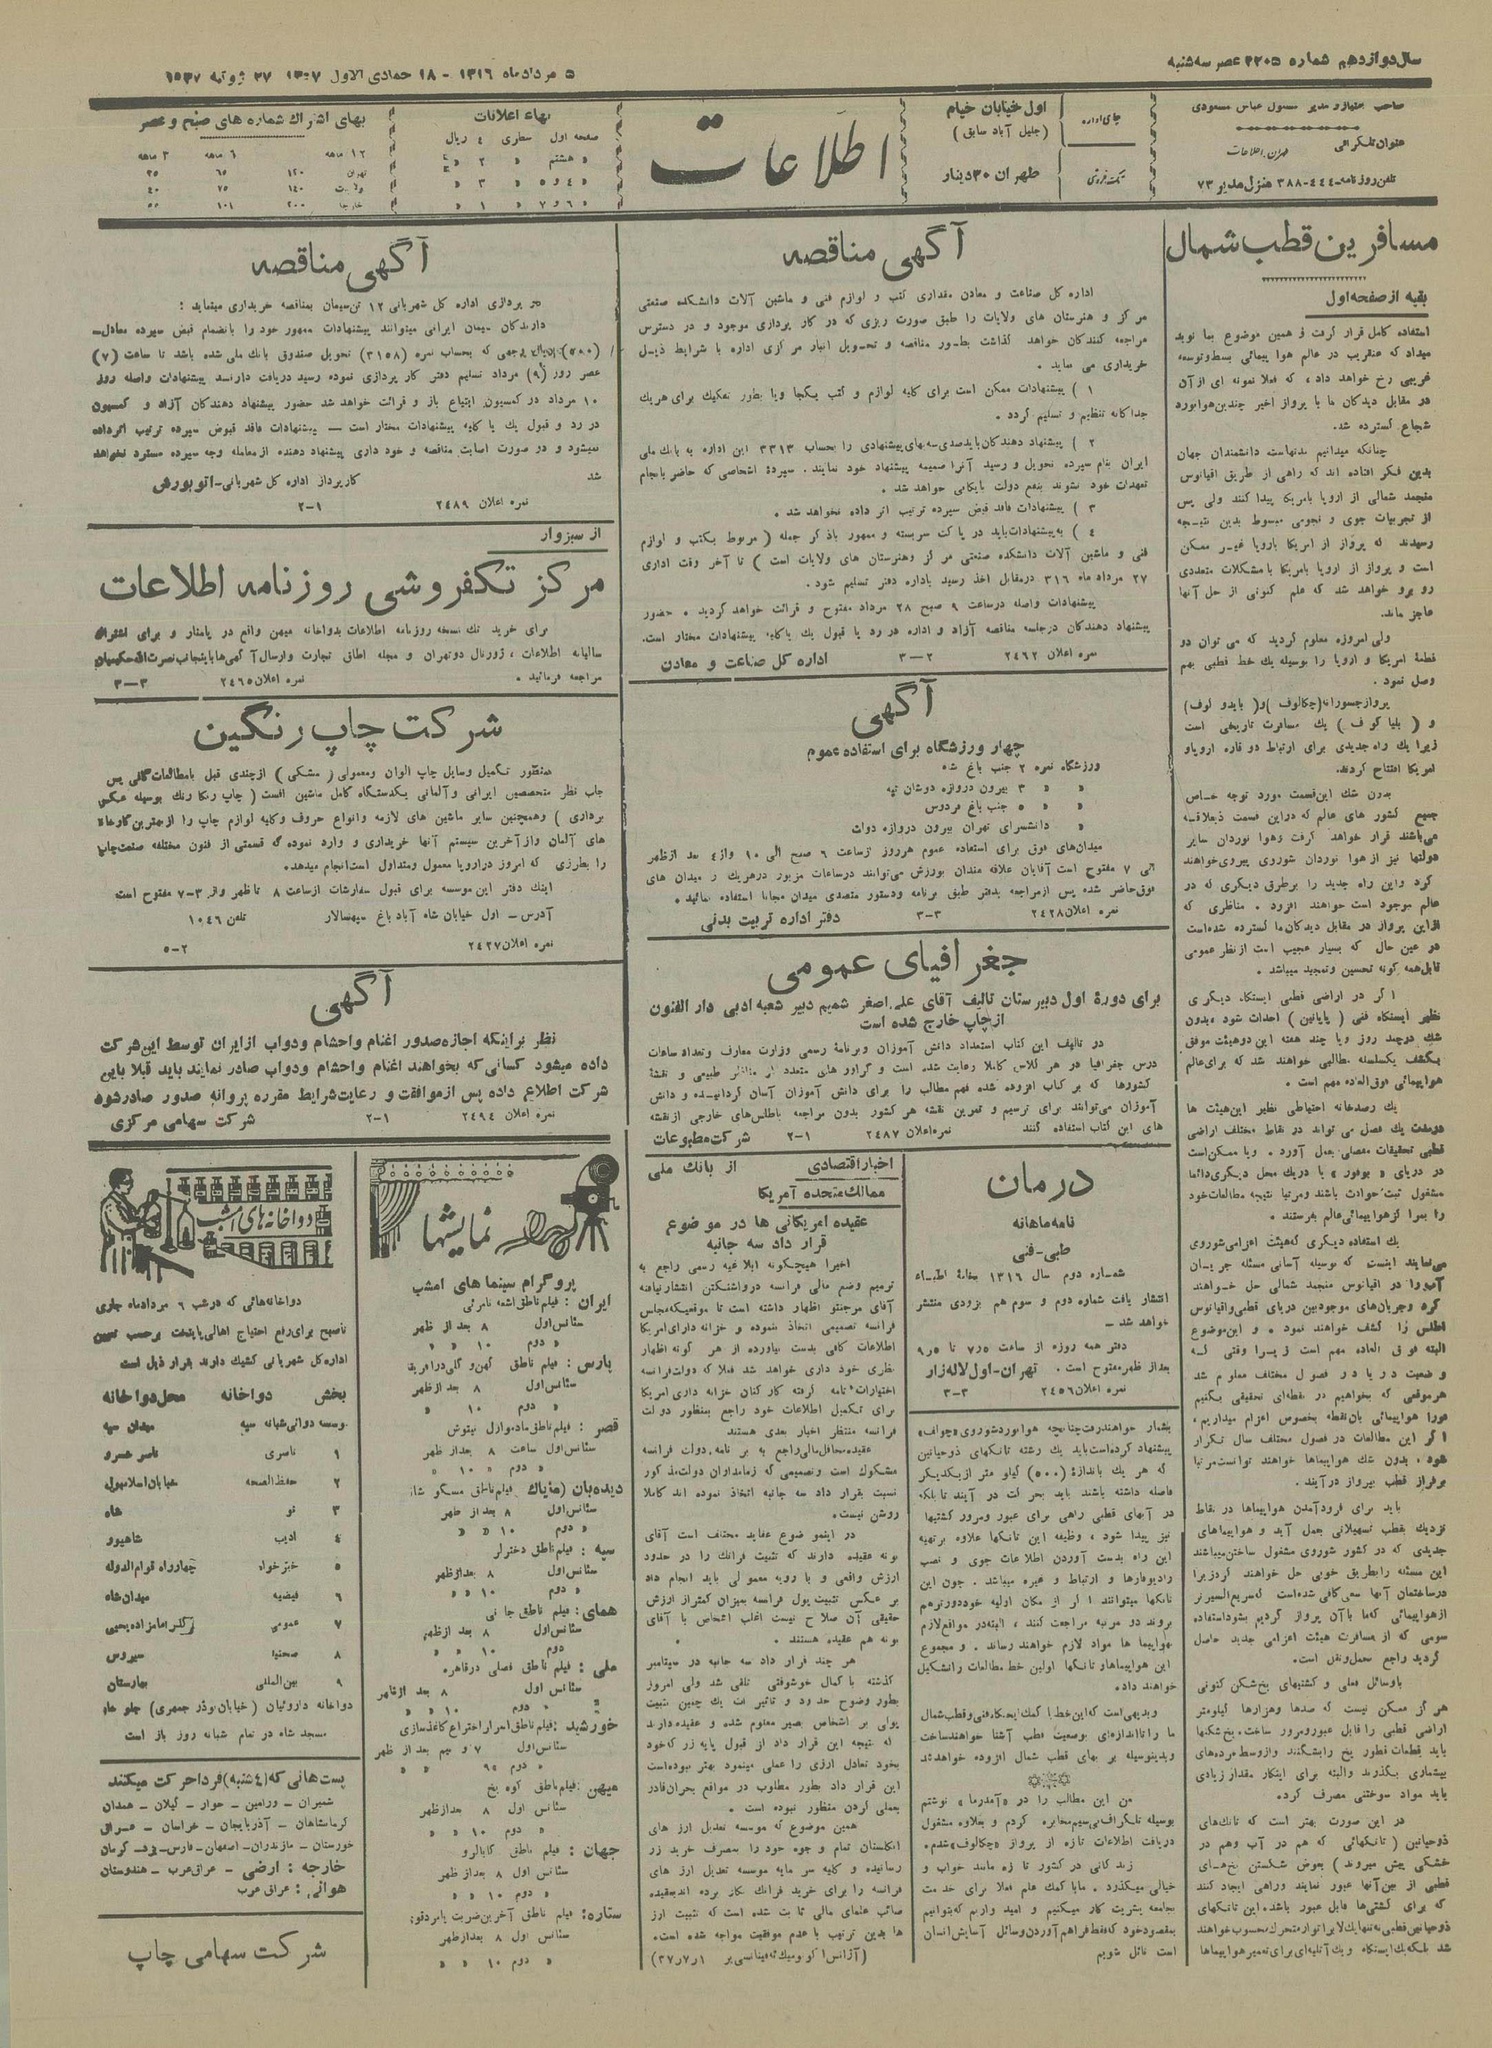 سال دوازدهم شماره ۳۲۰۵ عصر سه شنبه
۵ مرداد ماه ۱۳۱۶ - ۱۸ جمادی الاول ۱۳۵۷ ۲۷ ژوئیه ۱۹۳۷
صاحب امتیاز و مدیر مسئول عباس مسعودی
عنوان تلگرافی طهران اطلاعات
تلفن روزنامه ۴۴۴-۳۸۸ منزل مدیر ۷۳
جای اداره
اول خیابان خیام
(جلیل آباد سابق)
تکفروشی
طهران ۳۰ دینار
اطلاعات
بهاء اعلانات
صفحه اول سطری ۴ ریال
« هشتم « ۲ «
« ۴ و ۵ « ۳ «
« ۶ و ۷ « ۱ «
بهای اشتراك شماره های صبح و عصر
۱۲ ماهه ۶ ماهه ۳ ماهه
تهران ۱۲۰ ۶۵ ۳۵
ولایت ۱۴۰ ۷۵ ۴۰
خارجه ۲۰۰ ۱۰۱ ۵۵
مسافرین قطب شمال
بقیه از صفحه اول
استفاده کامل قرار گرفت و همین موضوع بما نوید
میداد که عنقریب در عالم هوا پیمائی بسط و توسعه
غریبی رخ خواهد داد، که فعلا نمونه ای از آن
در مقابل دیدگان ما با پرواز اخیر چندین هوانورد
شجاع گسترده شد.
چنانکه میدانیم مدتهاست دانشمندان جهان
بدین فکر افتاده اند که راهی از طریق اقیانوس
منجمد شمالی از اروپا بامریکا پیدا کنند ولی پس
از تجربیات جوی و نجومی مبسوط بدین نتیجه
رسیدند که پرواز از امریکا باروپا غیر ممکن
است و پرواز از اروپا بامریکا با مشکلات متعددی
رو برو خواهد شد که علم کنونی از حل آنها
عاجز ماند.
ولی امروزه معلوم گردید که می توان دو
قطعهٔ امریکا و اروپا را بوسیله یك خط قطبی بهم
وصل نمود.
پرواز جسورانه (چکالوف) و (بایدو لوف)
و (بلیا کوف) یك مسافرت تاریخی است
زیرا یك راه جدیدی برای ارتباط دو قاره اروپا و
امریکا افتتاح کردند.
بدون شك این قسمت مورد توجه خاص
جمیع کشور های عالم که در این قسمت ذیعلاقه
می‌باشند قرار خواهد گرفت و هوا نوردان سایر
دولتها نیز از هوا نوردان شوروی پیروی خواهند
کرد و این راه جدید را بر طرق دیگری که در
عالم موجود است خواهند افزود. مناظری که
از این پرواز در مقابل دیدگان ما گسترده شده است
در عین حال که بسیار عجیب است از نظر عمومی
قابل همه گونه تحسین و تمجید میباشد.
اگر در اراضی قطبی ایستگاه دیگری
نظیر ایستگاه فنی (پاپانین) احداث شود بدون
شك در چند روز و یا چند هفته این دو هیئت موفق
بکشف یکسلسله مطالبی خواهند شد که برای عالم
هواپیمائی فوق العاده مهم است.
یك رصدخانه احتیاطی نظیر این هیئت ها
در مدت یك فصل می تواند در نقاط مختلف اراضی
قطبی تحقیقات مفصلی بعمل آورد. و یا ممکن است
در دریای « بوفور » یا در یك محل دیگری دائما
مشغول ثبت حوادث باشند و مرتبا نتیجه مطالعات خود
را بمراکز هواپیمائی عالم بفرستند.
یك استفاده دیگری که هیئت اعزامی شوروی
می‌نمایند اینست که بوسیله آسانی مسئله جریان
آب را در اقیانوس منجمد شمالی حل خواهند
کرد و جریان‌های موجود بین دریای قطبی و اقیانوس
اطلس را کشف خواهند نمود. و این موضوع
البته فوق العاده مهم است زیرا وقتی که
وضعیت دریا در فصول مختلف معلوم شد
هر موقعی که بخواهیم در نقطه‌ای تحقیقی بکنیم
فورا هواپیمائی بان نقطه بخصوص اعزام میداریم،
اگر این مطالعات در فصول مختلف سال تکرار
شود، بدون شك هواپیماها خواهند توانست مرتبا
بر فراز قطب بپرواز در آیند.
باید برای فرود آمدن هواپیماها در نقاط
نزدیك بقطب تسهیلاتی بعمل آید و هواپیماهای
جدیدی که در کشور شوروی مشغول ساختن میباشند
این مسئله را بطریق خوبی حل خواهند کرد زیرا
در ساختمان آنها سعی کافی شده است که سریع السیرتر
از هواپیمائی که ما با آن پرواز کردیم بشود استفاده
سومی که از مسافرت هیئت اعزامی جدید حاصل
گردید راجع بحمل و نقل است.
با وسائل فعلی و کشتیهای یخ شکن کنونی
هرگز ممکن نیست که صدها و هزارها کیلومتر
اراضی قطبی را قابل عبور و مرور ساخت. یخ شکنها
باید قطعات قطور یخ را بشکنند و از وسط توده‌های
بیشماری بگذرند و البته برای اینکار مقدار زیادی
باید مواد سوختنی مصرف کرد.
در این صورت بهتر است که تانك‌های
ذوحیاتین (تانکهائی که هم در آب و هم در
خشکی پیش میروند) بعوض شکستن یخ‌های
قطبی از بین آنها عبور نمایند و راهی ایجاد کنند
که برای کشتی‌ها قابل عبور باشد. این تانکهای
ذوحیاتین قطبی نه تنها یك لابراتوار متحرك محسوب خواهند
شد بلکه یك ایستگاه و یك آتلیه‌ای برای تعمیر هواپیماها
آگهی مناقصه
اداره کل صناعت و معادن مقداری کتب و لوازم فنی و ماشین آلات دانشکده صنعتی
مرکز و هنرستان های ولایات را طبق صورت ریزی که در کار پردازی موجود و در دسترس
مراجعه کنندگان خواهد گذاشت بطور مناقصه و تحویل انبار مرکزی اداره با شرایط ذیل
خریداری می نماید.
۱) پیشنهادات ممکن است برای کلیه لوازم و کتب یکجا و یا بطور تفکیك برای هر یك
جداگانه تنظیم و تسلیم گردد.
۲) پیشنهاد دهندگان باید صدی سه بهای پیشنهادی را بحساب ۳۳۱۳ این اداره به بانك ملی
ایران بنام سپرده تحویل و رسید آنرا ضمیمه پیشنهاد خود نمایند. سپردهٔ اشخاصی که حاضر بانجام
تعهدات خود نشوند بنفع دولت بایگانی خواهد شد.
۳) پیشنهادات فاقد قبض سپرده ترتیب اثر داده نخواهد شد.
۴) به پیشنهادات باید در پاکت سربسته و ممهور با ذکر جمله (مربوط بکتب و لوازم
فنی و ماشین آلات دانشکده صنعتی مرکز و هنرستان های ولایات است) تا آخر وقت اداری
۲۷ مرداد ماه ۳۱۶ در مقابل اخذ رسید باداره دفتر تسلیم شود.
پیشنهادات واصله در ساعت ۹ صبح ۲۸ مرداد مفتوح و قرائت خواهد گردید. حضور
پیشنهاد دهندگان در جلسه مناقصه آزاد و اداره در رد یا قبول یك یا کلیه پیشنهادات مختار است.
نمره اعلان ۲۴۶۲ ۲-۳ اداره کل صناعت و معادن
آگهی
چهار ورزشگاه برای استفاده عموم
ورزشگاه نمره ۲ جنب باغ شاه
« « ۳ بیرون دروازه دوشان تپه
« « ۵ جنب باغ فردوس
« دانشسرای تهران بیرون دروازه دولت
میدان‌های فوق برای استفاده عموم هر روز از ساعت ۶ صبح الی ۱۰ و از ۴ بعد از ظهر
الی ۷ مفتوح است آقایان علاقه مندان بورزش می‌توانند در ساعات مزبور در هر یك از میدان های
فوق حاضر شده پس از مراجعه بدفتر طبق برنامه و دستور متصدی میدان مجانا استفاده نمایند.
نمره اعلان ۲۴۲۸ ۳-۳ دفتر اداره تربیت بدنی
جغرافیای عمومی
برای دورهٔ اول دبیرستان تالیف آقای علی اصغر شمیم دبیر شعبه ادبی دار الفنون
از چاپ خارج شده است
در تالیف این کتاب استعداد دانش آموزان و برنامهٔ رسمی وزارت معارف و تعداد ساعات
درس جغرافیا در هر کلاس کاملا رعایت شده است و گراور های متعدد از مناظر طبیعی و نقشهٔ
کشورها که بر کتاب افزوده شده فهم مطالب را برای دانش آموزان آسان گردانیده و دانش
آموزان می‌توانند برای ترسیم و تمرین نقشه هر کشور بدون مراجعه باطلس‌های خارجی از نقشه
های این کتاب استفاده کنند نمره اعلان ۲۴۸۷ ۱-۲ شرکت مطبوعات
درمان
نامه ماهانه
طبی-فنی
شماره دوم سال ۱۳۱۶ بخامهٔ اطباء
انتشار یافت شماره دوم و سوم هم بزودی منتشر
خواهد شد -
دفتر همه روزه از ساعت ۷٫۵ تا ۹٫۵
بعد از ظهر مفتوح است. تهران-اول لاله زار
نمره اعلان ۲۴۵۶ ۳-۳
بشمار خواهند رفت چنانچه هوانورد شوروی «چولف»
پیشنهاد کرده است باید یك رشته تانکهای ذوحیاتین
که هر یك باندازهٔ (۵۰۰) کیلو متر از یکدیگر
فاصله داشته باشند باید بحرکت در آیند تا بلکه
در آبهای قطبی راهی برای عبور و مرور کشتیها
نیز پیدا شود، وظیفه این تانکها علاوه بر تهیه
این راه بدست آوردن اطلاعات جوی و نصب
رادیوفارها و ارتباط و غیره میباشد. چون این
تانکها میتوانند اگر از مکان اولیه خود دورتر هم
بروند دو مرتبه مراجعت کنند، البته در مواقع لازم
بهواپیما ها مواد لازم خواهند رساند. و مجموع
این هواپیماها و تانکها اولین خط مطالعات را تشکیل
خواهند داد.
و بدیهی است که این خط با کمك ایستگاه فنی و قطب شمال
ما را تا اندازه‌ای بوضعیت قطب آشنا خواهند ساخت
و بدینوسیله بر بهای قطب شمال افزوده خواهد شد
من این مطالب را در «آمدرما» نوشتم
بوسیله تلگراف بی‌سیم مخابره کردم و بعلاوه مشغول
دریافت اطلاعات تازه از پرواز «چکالوف» شدم.
زندگانی در کشور تازه مانند خواب و
خیالی میگذرد. ما با کمك علم فعلا برای خدمت
بجامعه بشریت کار میکنیم و امید واریم که بتوانیم
بمقصود خود که فقط فراهم آوردن وسائل آسایش انسان
است نائل شویم
اخبار اقتصادی از بانك ملی
ممالك متحده آمریکا
عقیده امریکائی ها در موضوع
قرار داد سه جانبه
اخیرا هیچگونه ابلاغیه رسمی راجع به
ترمیم وضع مالی فرانسه در واشنگتن انتشار نیافته
آقای مرجنتو اظهار داشته است تا موقعیکه مجلس
فرانسه تصمیمی اتخاذ ننموده و خزانه داری امریکا
اطلاعات کافی بدست نیاورده از هر گونه اظهار
نظری خود داری خواهد شد فعلا که دولت فرانسه
اختیارات تامه گرفته کارکنان خزانه داری امریکا
برای تکمیل اطلاعات خود راجع بمنظور دولت
فرانسه منتظر اخبار بعدی هستند
عقیده محافل مالی راجع به برنامه دولت فرانسه
مشکوك است و تصمیمی که زمامداران دولت مذکور
نسبت بقرار داد سه جانبه اتخاذ نموده اند کاملا
روشن نیست.
در اینموضوع عقاید مختلف است آقای
بونه عقیده دارند که تثبیت فرانك را در حدود
ارزش واقعی و با رویه معمولی باید انجام داد
بر عکس تثبیت پول فرانسه بمیزان کمتر از ارزش
حقیقی آن صلاح نیست اغلب اشخاص با آقای
بونه هم عقیده هستند.
هر چند قرار داد سه جانبه در سپتامبر
گذشته با کمال خوشوقتی تلقی شد ولی امروز
بطور وضوح حدود و تاثیرات یك چنین تثبیت
پولی بر اشخاص بصیر معلوم شده و عقیده دارند
که نتیجه این قرار داد از قبول پایه زر که خود
بخود تعادل ارزی را عملی مینمود بهتر نبوده است
این قرار داد بطور مطلوب در مواقع بحران قادر
بعملی کردن منظور نبوده است.
همین موضوع که موسسه تعدیل ارز های
انگلستان تمام وجوه خود را بمصرف خرید زر
رسانیده و کلیه سرمایه موسسه تعدیل ارز های
فرانسه را برای خرید فرانك بکار برده اند بعقیده
صائب علمای مالی ثابت شده است که تثبیت ارز
ها بدین ترتیب با عدم موفقیت مواجه شده است.
(آژانس اکونومیك ئه فینانسی بر ۱ر۷ر۳۷)
آگهی مناقصه
کار پردازی اداره کل شهربانی ۱۲ تن سیمان بمناقصه خریداری مینماید:
دارندگان سیمان ایرانی میتوانند پیشنهادات ممهور خود را بانضمام قبض سپرده معادل
(۵۸۰) ریال وجهی که بحساب نمره (۳۱۵۸) تحویل صندوق بانك ملی شده باشد تا ساعت (۷)
عصر روز (۹) مرداد تسلیم دفتر کار پردازی نموده رسید دریافت دارند پیشنهادات واصله روز
۱۰ مرداد در کمسیون ابتیاع باز و قرائت خواهد شد حضور پیشنهاد دهندگان آزاد و کمسیون
در رد و قبول یك یا کلیه پیشنهادات مختار است - پیشنهادات فاقد قبوض سپرده ترتیب اثر داده
نمیشود و در صورت اصابت مناقصه و خود داری پیشنهاد دهنده از معامله وجه سپرده مسترد نخواهد
شد کارپرداز اداره کل شهربانی-اتوبورش
نمره اعلان ۲۴۸۹ ۱-۲
از سبزوار
مرکز تکفروشی روزنامه اطلاعات
برای خرید تك نسخه روزنامه اطلاعات بدواخانه میهن واقع در پامنار و برای اشتراك
سالیانه اطلاعات، ژورنال دوتهران و مجله اطاق تجارت و ارسال آگهی‌ها باینجانب نصرت‌الله حکیمیان
مراجعه فرمائید. نمره اعلان ۲۴۶۵ ۳-۳
شرکت چاپ رنگین
بمنظور تکمیل وسایل چاپ الوان و معمولی (مشکی) از چندی قبل با مطالعات کافی پس
جلب نظر متخصصین ایرانی و آلمانی یکدستگاه کامل ماشین افست (چاپ رنگا رنگ بوسیله عکس
برداری) و همچنین سایر ماشین های لازمه و انواع حروف و کلیه لوازم چاپ را از مهمترین کارخانه
های آلمان و از آخرین سیستم آنها خریداری و وارد نموده که قسمتی از فنون مختلفه صنعت چاپ
را بطرزی که امروز در اروپا معمول و متداول است انجام میدهد.
اینك دفتر این موسسه برای قبول سفارشات از ساعت ۸ تا ظهر و از ۳-۷ مفتوح است
آدرس - اول خیابان شاه آباد باغ سپهسالار تلفن ۱۰۴۶
نمره اعلان ۲۴۳۷ ۲-۵
آگهی
نظر براینکه اجازه صدور اغنام و احشام و دواب از ایران توسط این شرکت
داده میشود کسانی که بخواهند اغنام و احشام و دواب صادر نمایند باید قبلا باین
شرکت اطلاع داده پس از موافقت و رعایت شرایط مقرره پروانه صدور صادر شود
نمره اعلان ۲۴۹۴ ۱-۲ شرکت سهامی مرکزی
نمایشها
پروگرام سینما های امشب
ایران: فیلم ناطق اشعه نامرئی
سئانس اول ۸ بعد از ظهر
« دوم ۱۰ « «
پارس: فیلم ناطق کهن و کلی در افریقا
سئانس اول ۸ بعد از ظهر
« دوم ۱۰ « «
قصر: فیلم ناطق مادموازل نیتوش
سئانس اول ساعت ۸ بعد از ظهر
« دوم « ۱۰ «
دیده‌بان (مایاك) فیلم ناطق مسگو شانگ
سئانس اول ۸ بعد از ظهر
« دوم ۱۰ « «
سپه: فیلم ناطق دختر لر
سئانس اول ۸ بعد از ظهر
« دوم ۱۰ « «
همای: فیلم ناطق جانی
سئانس اول ۸ بعد از ظهر
دوم ۱۰ « «
ملی: فیلم ناطق فصلی در قاهره
سئانس اول ۸ بعد از ظهر
دوم ۱۰ « «
خورشید: فیلم ناطق اسرار اختراع کاغذسازی
سئانس اول ۷ و نیم بعد از ظهر
« دوم « «
میهن: فیلم ناطق کوه یخ
سئانس اول ۸ بعد از ظهر
« دوم ۱۰ « «
جهان: فیلم ناطق کابالرو
سئانس اول ۸ بعد از ظهر
« دوم ۱۰ « «
ستاره: فیلم ناطق آخرین ضربت یا مردقوی
سئانس اول ۸ بعد از ظهر
« دوم ۱۰ « «
دواخانه های امشب
دواخانه‌هائی که در شب ۶ مرداد ماه جاری
تا صبح برای رفع احتیاج اهالی پایتخت بر حسب تعیین
اداره کل شهربانی کشیك دارند بقرار ذیل است
بخش دواخانه محل دواخانه
موسسه دوائی شبانه سپه میدان سپه
۱ ناصری ناصر خسرو
۲ حفظ الصحه خیابان اسلامبول
۳ نو شاه
۴ ادیب شاهپور
۵ خیرخواه چهارراه قوام الدوله
۶ فیضیه میدان شاه
۷ عمومی گذر امامزاده یحیی
۸ صحتیه سیروس
۹ بین‌المللی بهارستان
دواخانه داروئیان (خیابان بوذر جمهری) جلو خان
مسجد شاه در تمام شبانه روز باز است
پست هائی که (۴ شنبه) فردا حرکت میکنند
شمیران - ورامین - خوار - گیلان - همدان
کرمانشاهان - آذربایجان - خراسان - عراق
خوزستان - مازندران - اصفهان - فارس - یزد - کرمان
خارجه: ارضی - عراق عرب - هندوستان
هوائی: عراق عرب
شرکت سهامی چاپ